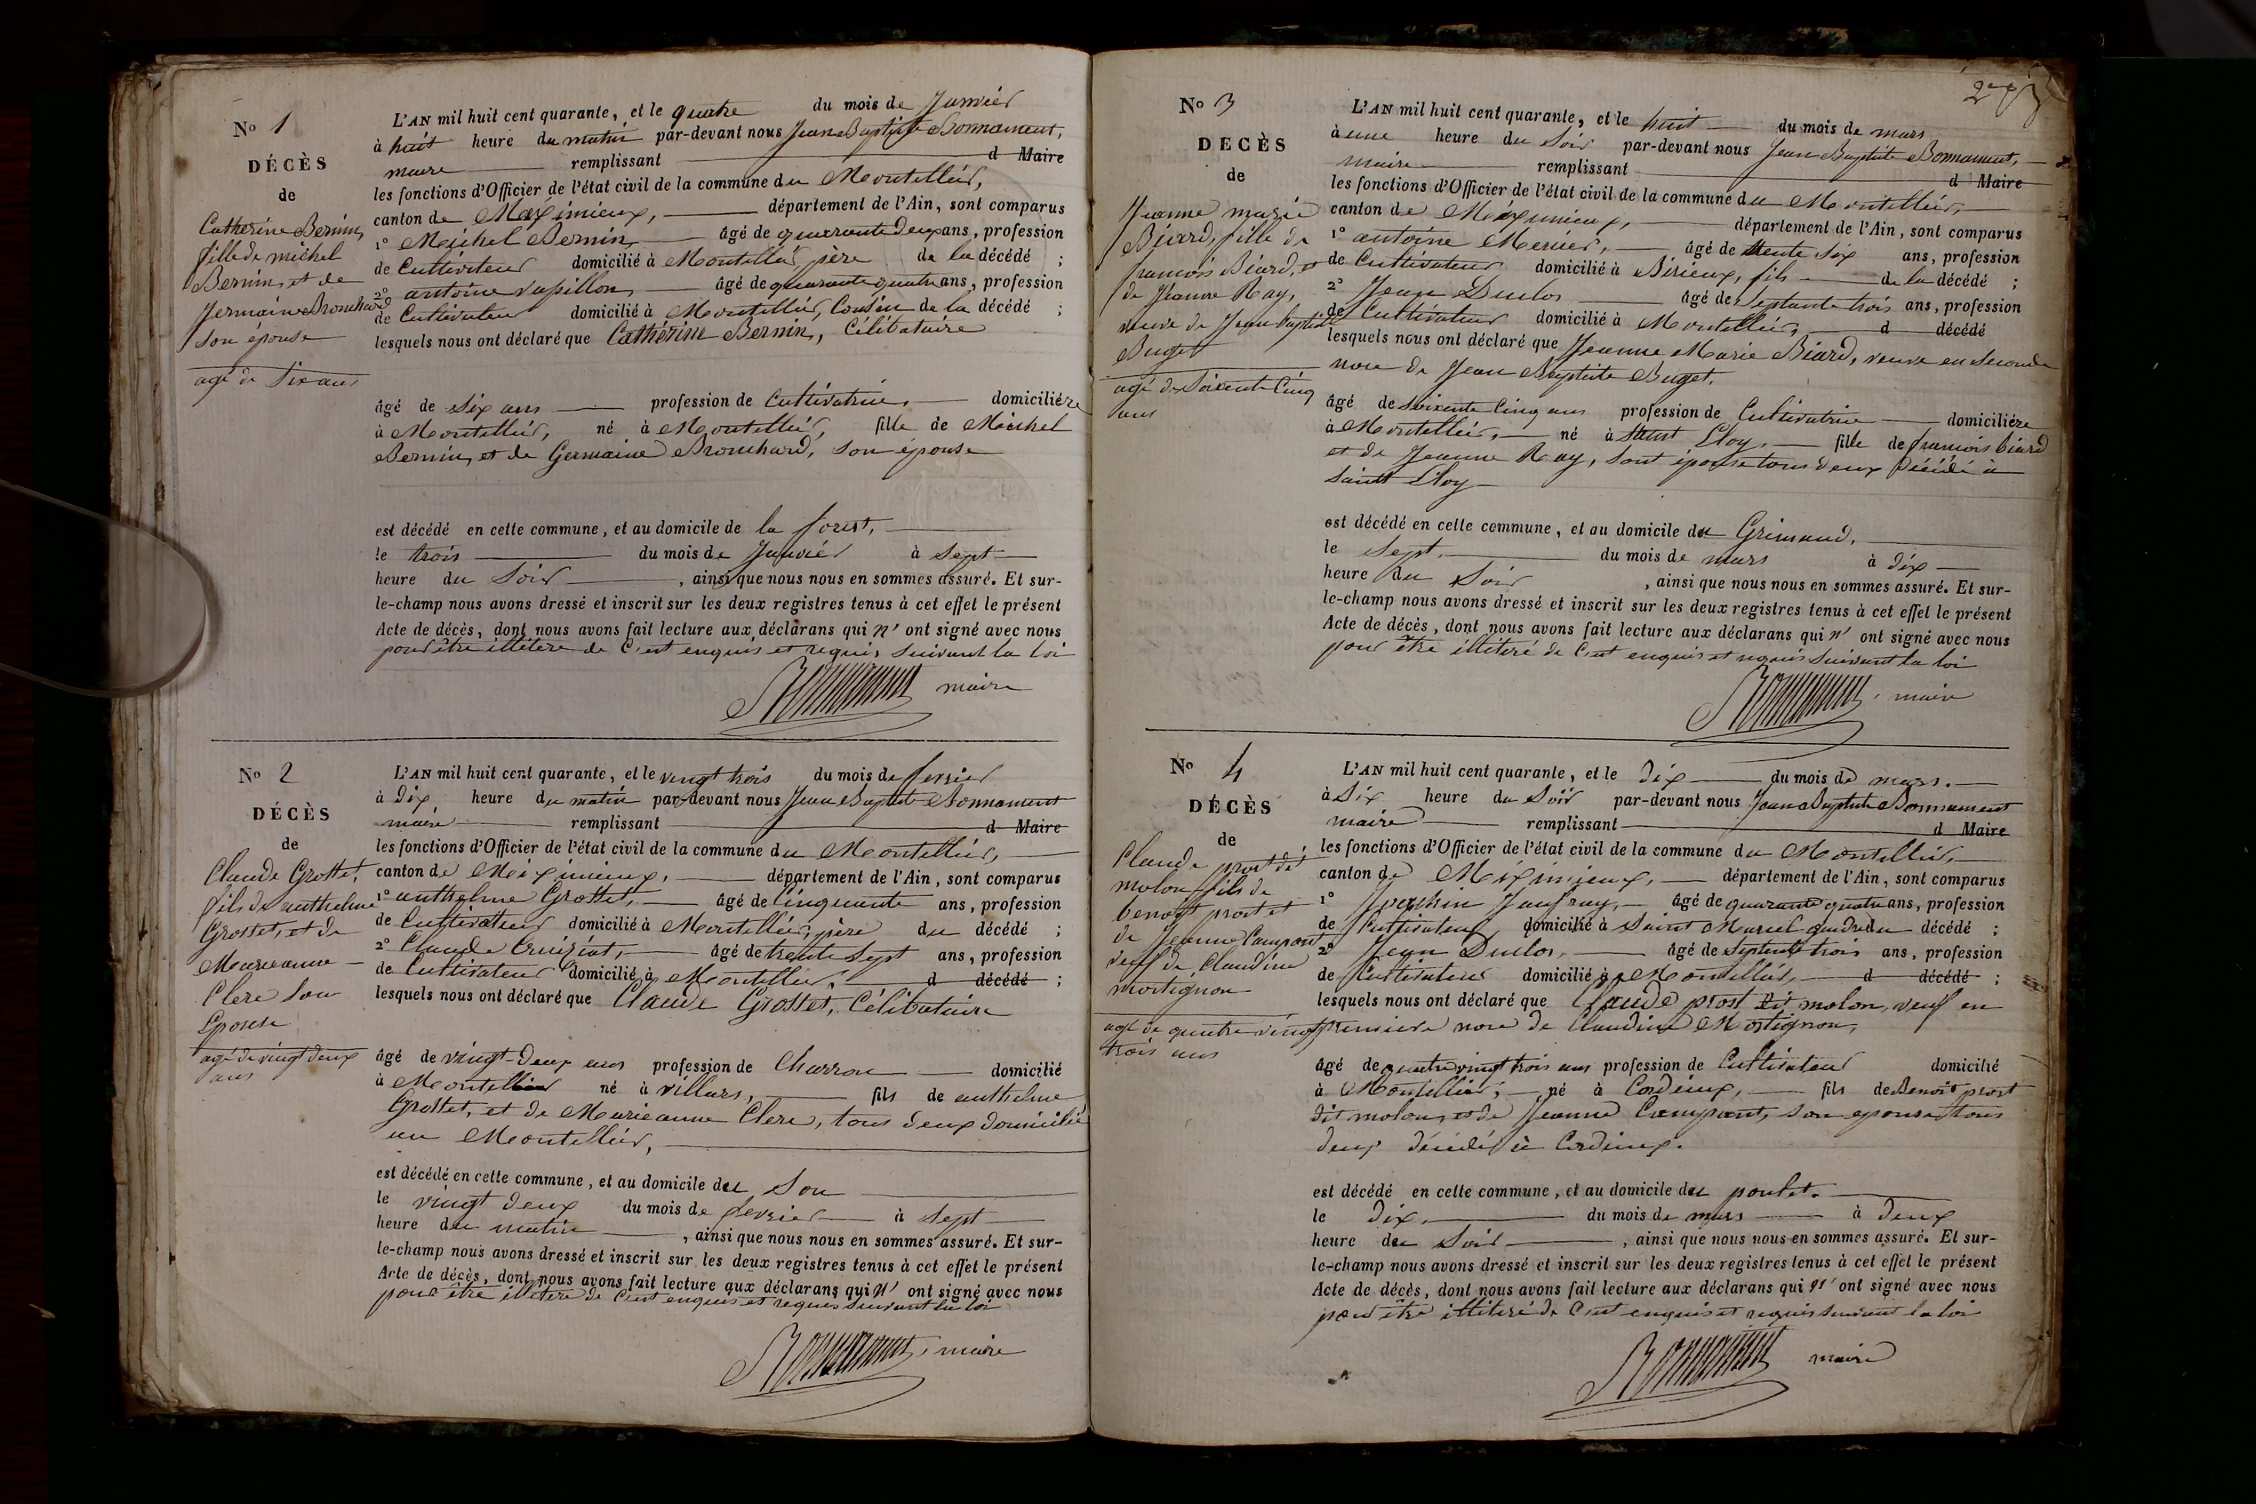 No 1
DÉCÈS
de
Catherine Bernin,
fille de michel
Bernin, et de
Jermaine Brouchard
son épouse
agé de Six ans
L'AN mil huit cent quarante, et le quatre du mois de Janvier
à huit heure du matin par-devant nous Jean Baptiste Bonnament,
maire remplissant d Maire
les fonctions d'Officier de l'état civil de la commune du Montellier,
canton de Meximieux, département de l'Ain, sont comparus
1° Michel Bernin, âgé de quarante deux ans, profession
de Cultivateur domicilié à Montellier, père de la décédé ;
2° antoine papillon, âgé de quarante quatre ans, profession
de Cultivateur domicilié à Montellier, Cousin de la décédé ;
lesquels nous ont déclaré que Catherine Bernin, Célibataire
âgé de six ans profession de Cultivatrice, domiciliére
à Montellier, né à Montellier, fille de Michel
Bernin, et de Germaine Brouchard, son épouse
est décédé en cette commune, et au domicile de la forest,
le trois du mois de Janvier à sept
heure du Soir , ainsi que nous nous en sommes assuré. Et sur-
le-champ nous avons dressé et inscrit sur les deux registres tenus à cet effet le présent
Acte de décès, dont nous avons fait lecture aux déclarans qui n' ont signé avec nous
pour être illitere de C'est enquis et requis suivant la loi
Bonnament maire
No 2
DÉCÈS
de
Claude Grosset,
fils de anthelme
Grosset, et de
Marieanne
Clere son
Epouse
agé de vingt deux
ans
L'AN mil huit cent quarante, et le vingt trois du mois de fevrier
à dix heure du matin par-devant nous Jean Baptiste Bonnament
maire remplissant d Maire
les fonctions d'Officier de l'état civil de la commune du Montellier,
canton de Meximieux, département de l'Ain, sont comparus
1° anthelme Grosset, âgé de Cinquante ans, profession
de Cultivateur domicilié à Montellier, père du décédé ;
2° Claude Cruiziat, âgé de trente sept ans, profession
de Cultivateur domicilié à Montellier, d décédé ;
lesquels nous ont déclaré que Claude Grosset, Célibataire
âgé de vingt-deux ans profession de Charron domicilié
à Montellier né à villars, fils de anthelme
Grosset, et de Marieanne Clere, tous deux domicilié
au Montellier,
est décédé en cette commune, et au domicile du Sou
le vingt deux du mois de fevrier à sept
heure du matin , ainsi que nous nous en sommes assuré. Et sur-
le-champ nous avons dressé et inscrit sur les deux registres tenus à cet effet le présent
Acte de décès, dont nous avons fait lecture aux déclarans qui n' ont signé avec nous
pour être illitere de C'est enquis et requis suivant la loi
Bonnament, maire
No 3
DÉCÈS
de
Jeanne marie
Béard, fille de
francois Béard, et
de Jéanne Ray,
veuve de Jean Baptiste
Buget
agé de Soixente Cinq
ans
L'AN mil huit cent quarante, et le huit du mois de mars
à une heure du Soir par-devant nous Jean Baptiste Bonnament,
maire remplissant d Maire
les fonctions d'Officier de l'état civil de la commune du Montellier,
canton de Méximieux, département de l'Ain, sont comparus
1° antoine Mercier, âgé de trente Six ans, profession
de Cultivateur domicilié à Birieux, fils de la décédé ;
2° Jean Duclos âgé de Septante trois ans, profession
de Cultivateur domicilié à Montellier, d décédé
lesquels nous ont déclaré que Jeanne Marie Béard, veuve en seconde
noce de Jean Baptiste Buget,
âgé de soixente Cinq ans profession de Cultivatrice domiciliére
à Montellier, né à Saint Eloy, fille de francois béard
et de Jeanne Ray, sont épouse tous deux décédé à
saint Eloy
est décédé en cette commune, et au domicile du Grimaud,
le sept, du mois de mars à dix
heure du Soir , ainsi que nous nous en sommes assuré. Et sur-
le-champ nous avons dressé et inscrit sur les deux registres tenus à cet effet le présent
Acte de décès, dont nous avons fait lecture aux déclarans qui n' ont signé avec nous
pour être illitéré de C'est enquis et requis suivant la loi
Bonnament, maire
No 4
DÉCÈS
de
Claude prost dit
molon fils de
benoit prost et
de Jeanne Campant
veuf de Claudine
mortignon
agé de quatre vingt
trois ans
L'AN mil huit cent quarante, et le dix du mois de mars.
à Six heure du Soir par-devant nous Jean Baptiste Bonnament
maire remplissant d Maire
les fonctions d'Officier de l'état civil de la commune du Montellier,
canton de Méximieux, département de l'Ain, sont comparus
1° Joachin Jaufray, âgé de quarante quatre ans, profession
de Cultivateur domicilié à Saint Marcel gendre du décédé ;
2° Jean Duclos, âgé de septente trois ans, profession
de Cultivateur domicilié à Montellier, d décédé ;
lesquels nous ont déclaré que Claude prost dit molon, veuf en
premiere noce de Claudine Mortignon,
âgé de quatre vingt trois ans profession de Cultivateur domicilié
à Montellier, né à Cordieux, fils de Benoit prost
dit molon, et de Jeanne Campant, son epouse, tous
deux décédé à Cordieux.
est décédé en cette commune, et au domicile du poulet.
le dix, du mois de mars à deux
heure du Soir , ainsi que nous nous en sommes assuré. Et sur-
le-champ nous avons dressé et inscrit sur les deux registres tenus à cet effet le présent
Acte de décès, dont nous avons fait lecture aux déclarans qui n' ont signé avec nous
pour être illitéré de C'est enquis et requis suivant la loi
Bonnament maire